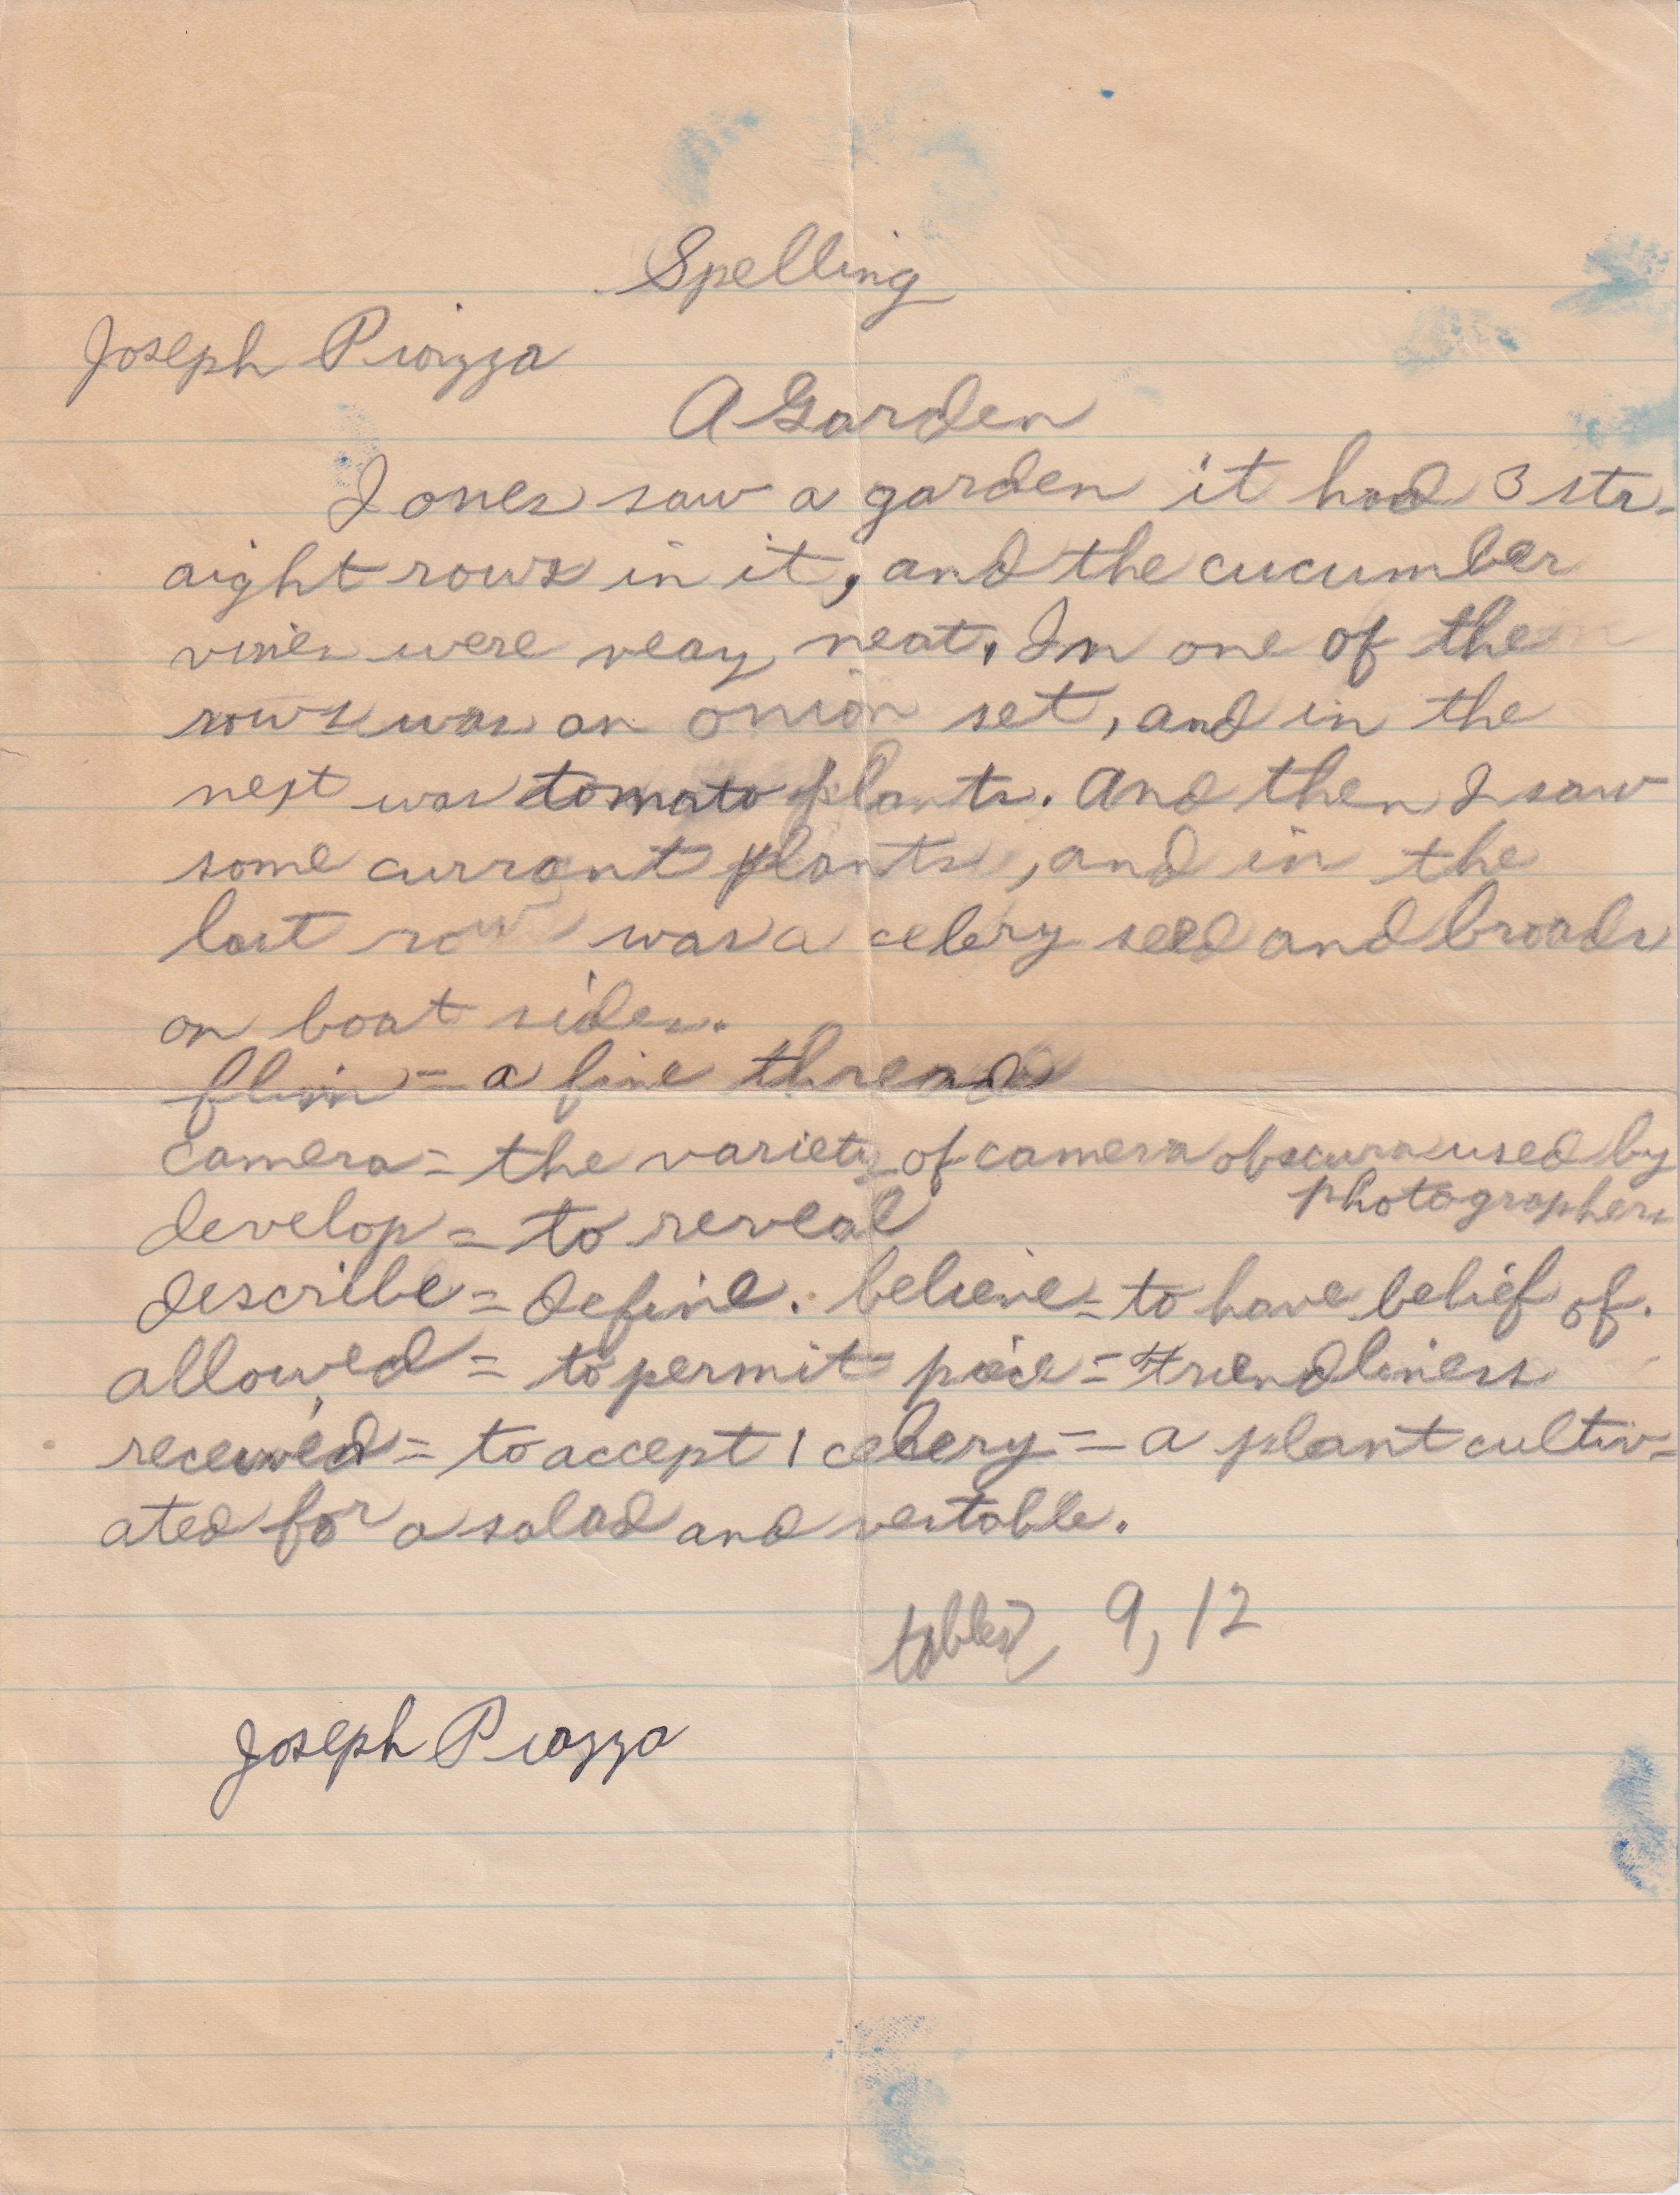 Spelling
Joseph Piazza
A Garden
I ones saw a garden it had 3 str-
aight rows in it, and the cucumber
vines were veay neat. In one of the
rows was an onion set, and in the
next was tomato plants. And then I saw
some currant plants, and in the
last row was a celery seed and broads
on boat sides.
flim = a fine thread
camera = the variety of camera obscura used by
photographers
develop = to reveal
describe = define. believe = to have belief of.
allowed = to permit piece = friendliness
received = to accept | celery = a plant cultiv-
ated for a salad and vestable.
tables 9, 12
Joseph Piazza